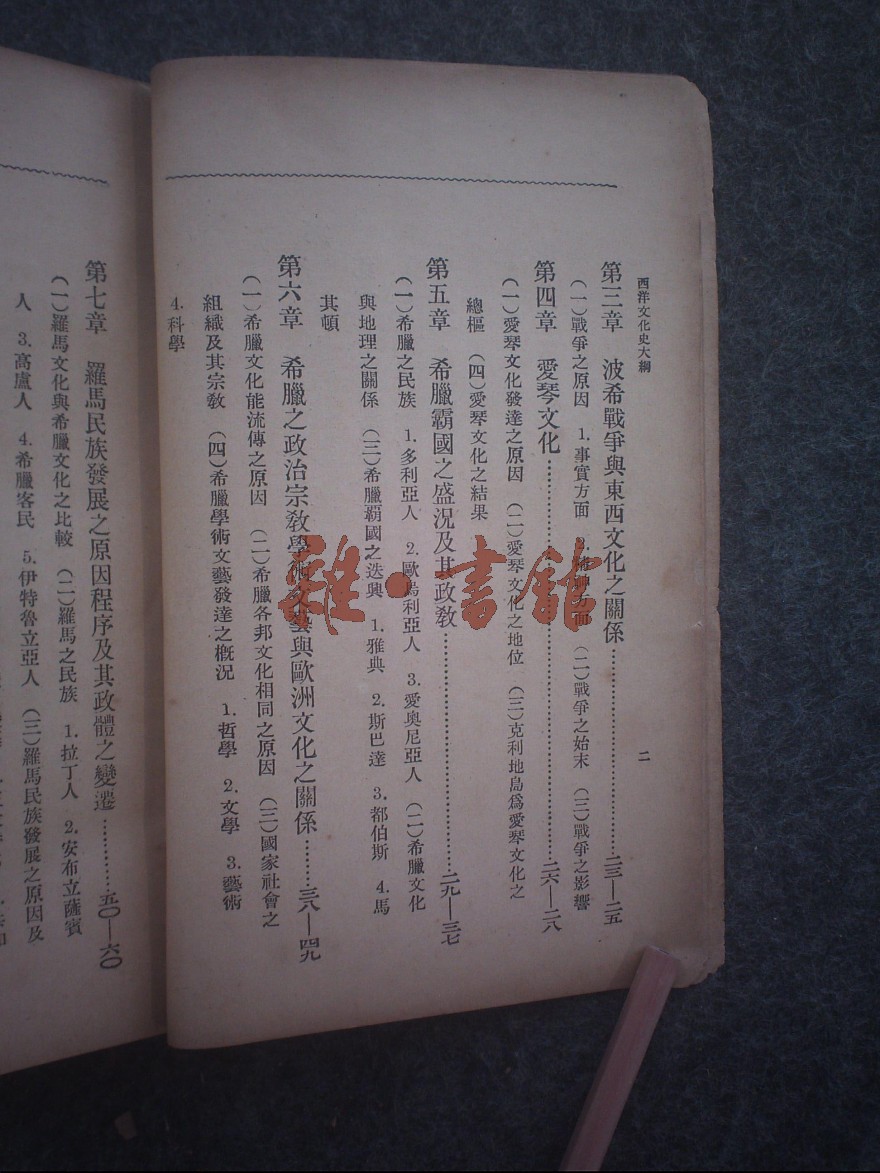 西洋文化史大綱
二
第三章 波希戰爭與東西文化之關係…………二三—二五
(一)戰爭之原因 1.事實方面 精神方面 (二)戰爭之始末 (三)戰爭之影響
第四章 愛琴文化…………二六—二八
(一)愛琴文化發達之原因 (二)愛琴文化之地位 (三)克利地島爲愛琴文化之
總樞 (四)愛琴文化之結果
第五章 希臘霸國之盛況及其政教…………二九—三七
(一)希臘之民族 1.多利亞人 2.歐烏利亞人 3.愛奧尼亞人 (二)希臘文化
與地理之關係 (三)希臘霸國之迭興 1.雅典 2.斯巴達 3.都伯斯 4.馬
其頓
第六章 希臘之政治宗教學術文藝與歐洲文化之關係………三八—四九
(一)希臘文化能流傳之原因 (二)希臘各邦文化相同之原因 (三)國家社會之
組織及其宗教 (四)希臘學術文藝發達之概況 1.哲學 2.文學 3.藝術
4.科學
第七章 羅馬民族發展之原因程序及其政體之變遷…………五〇—六〇
(一)羅馬文化與希臘文化之比較 (二)羅馬之民族 1.拉丁人 2.安布立薩賓
人 3.高盧人 4.希臘客民 5.伊特魯立亞人 (三)羅馬民族發展之原因及
雜·書館